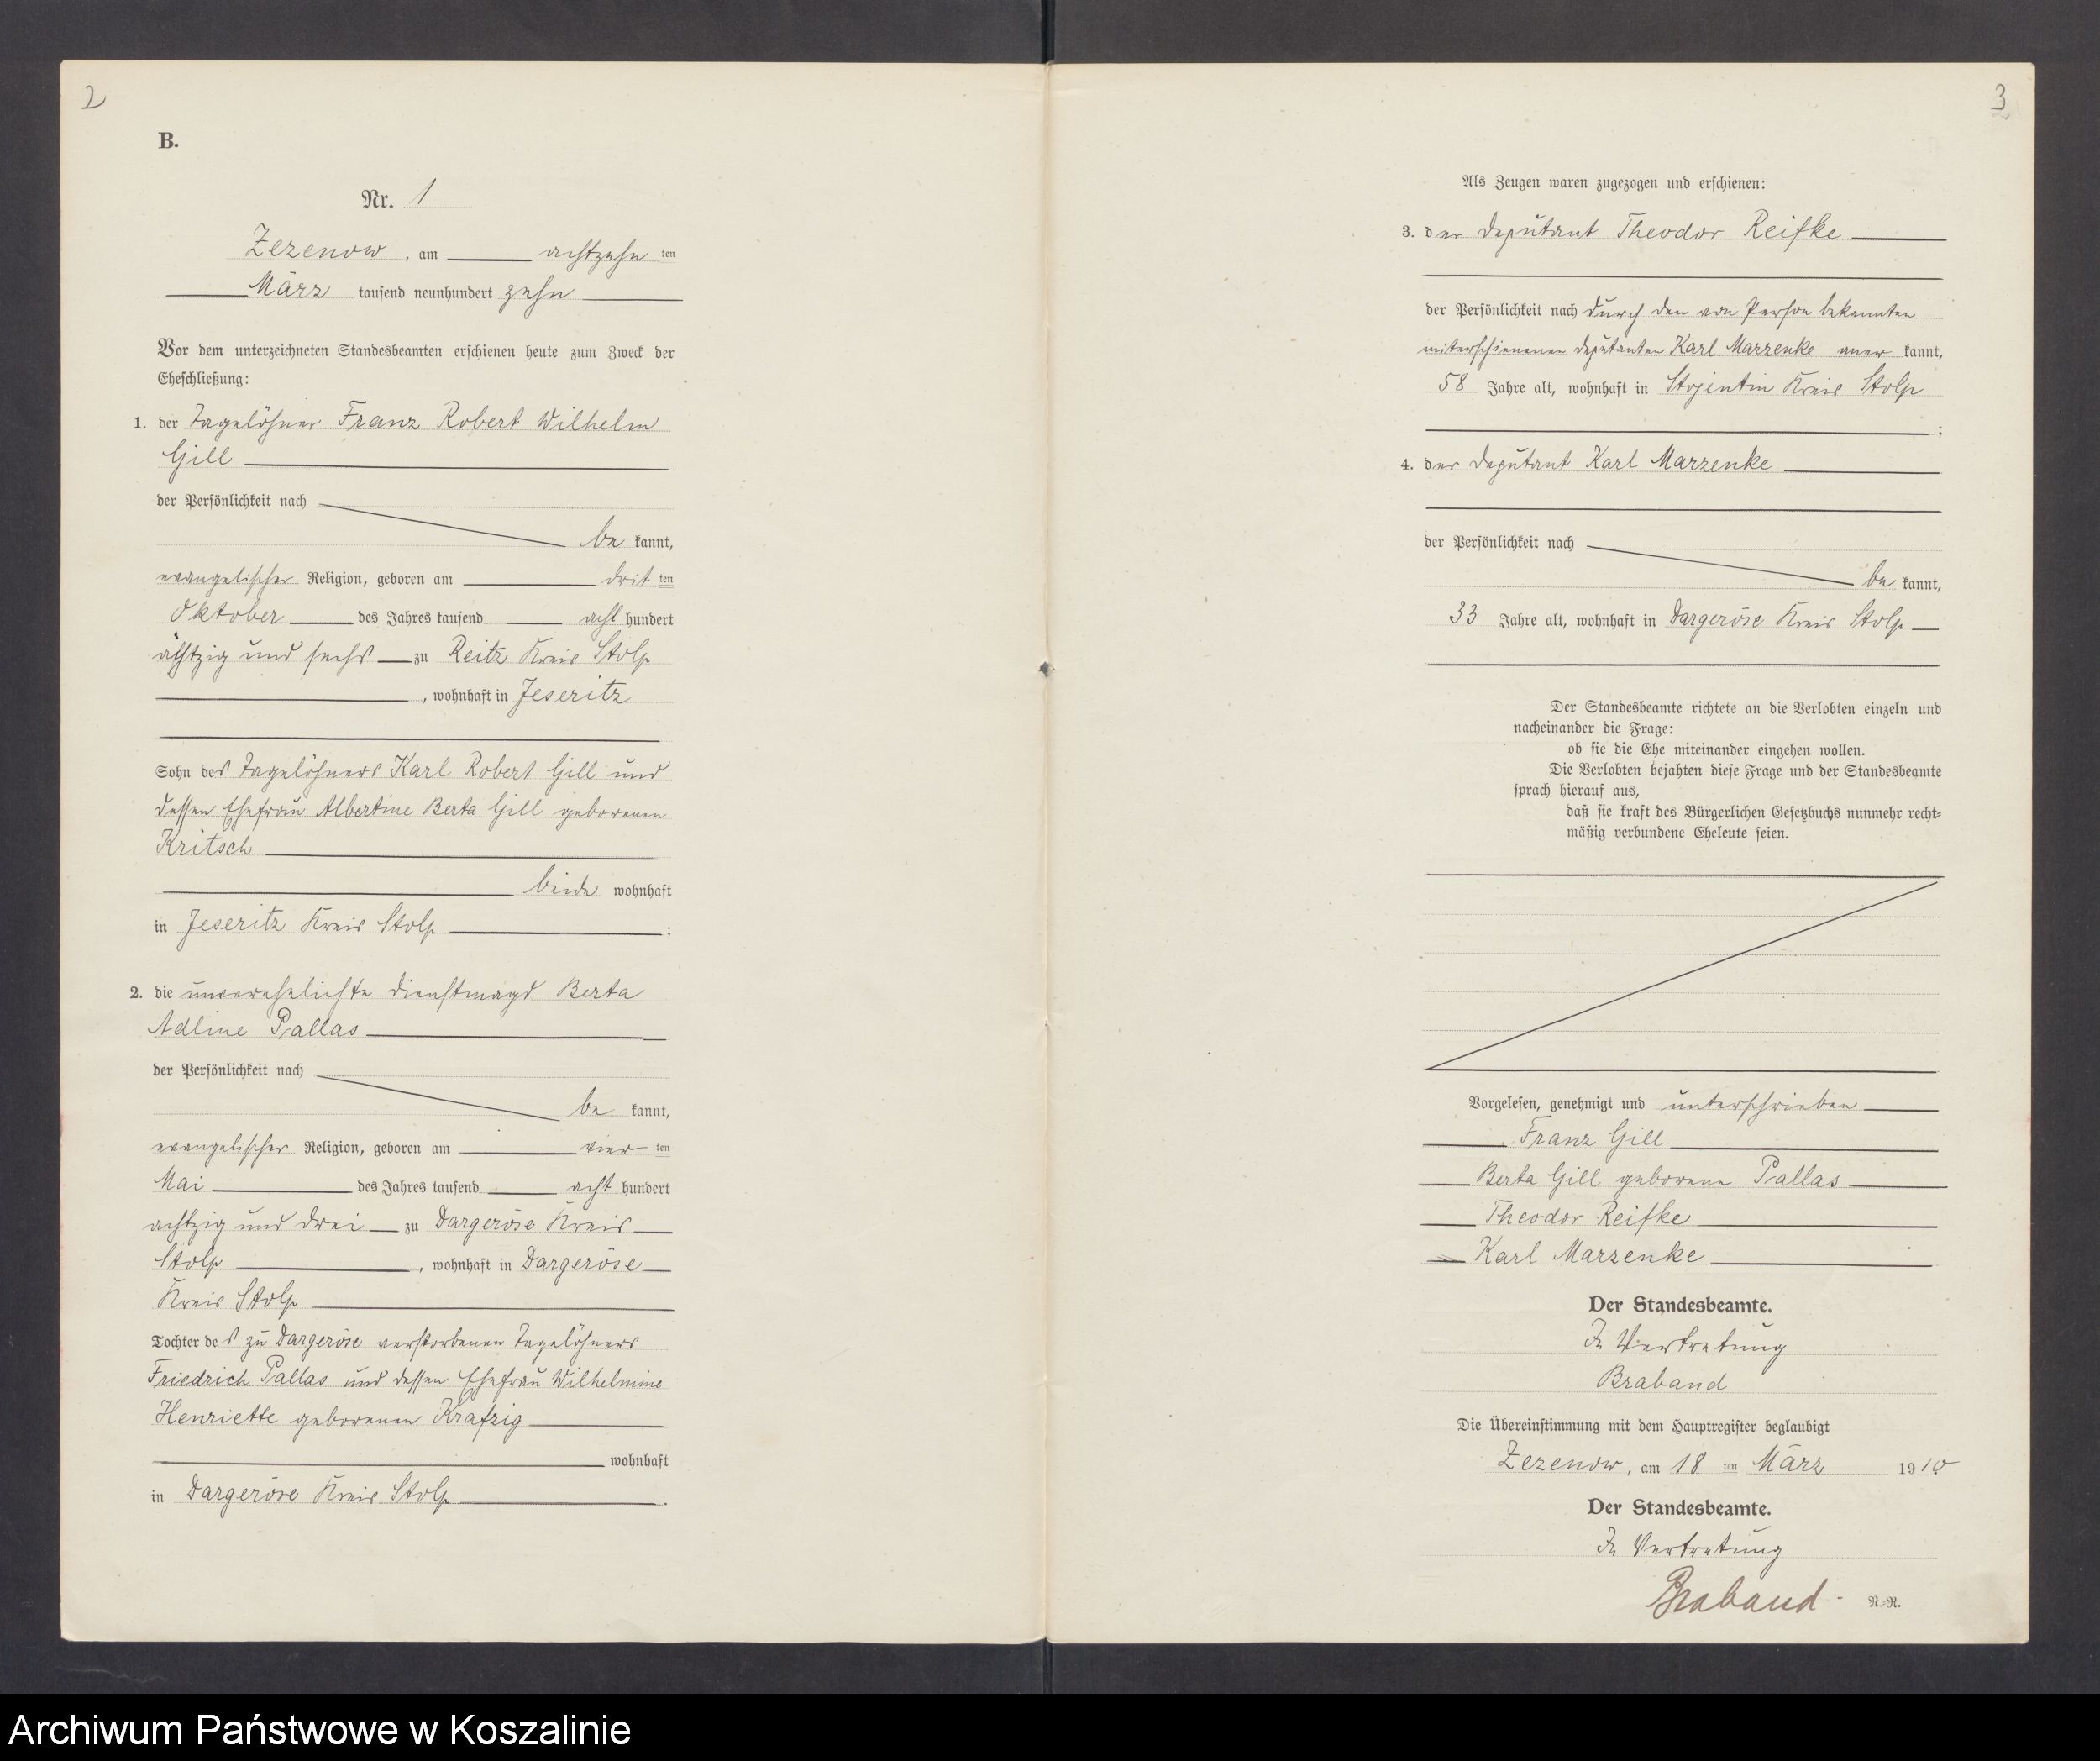 2
B.
Nr. 1
Zezenow, am achtzehn ten
März tausend neunhundert zehn
Vor dem unterzeichneten Standesbeamten erschienen heute zum Zweck der
Eheschließung:
1. der Tagelöhner Franz Robert Wilhelm
Gill
der Persönlichkeit nach
be kannt,
evangelischer Religion, geboren am dritten
Oktober des Jahres tausend acht hundert
achtzig und sechs zu Reitz Kreis Stolp
, wohnhaft in Jeseritz
Sohn des Tagelöhners Karl Robert Gill und
dessen Ehefrau Albertine Berta Gill geborenen
Kritsch
beide wohnhaft
in Jeseritz Kreis Stolp ;
2. die unverehelichte Dienstmagd Berta
Adline Pallas
der Persönlichkeit nach
be kannt,
evangelischer Religion, geboren am vier ten
Mai des Jahres tausend acht hundert
achtzig und drei zu Dargeröse Kreis
Stolp , wohnhaft in Dargeröse
Kreis Stolp
Tochter des zu Dargeröse verstorbenen Tagelöhners
Friedrich Pallas und dessen Ehefrau Wilhelmine
Henriette geborenen Krafzig
wohnhaft
in Dargeröse Kreis Stolp .
3
Als Zeugen waren zugezogen und erschienen:
3. der Deputant Theodor Reifke
der Persönlichkeit nach durch den von Person bekannten
miterschienenen Deputanten Karl Marzenke aner kannt,
58 Jahre alt, wohnhaft in Stojentin Kreis Stolp
;
4. der Deputant Karl Marzenke
der Persönlichkeit nach
be kannt,
33 Jahre alt, wohnhaft in Dargeröse Kreis Stolp
Der Standesbeamte richtete an die Verlobten einzeln und
nacheinander die Frage:
ob sie die Ehe miteinander eingehen wollen.
Die Verlobten bejahten diese Frage und der Standesbeamte
sprach hierauf aus,
daß sie kraft des Bürgerlichen Gesetzbuchs nunmehr recht-
mäßig verbundene Eheleute seien.
Vorgelesen, genehmigt und unterschrieben
Franz Gill
Berta Gill geborene Pallas
Theodor Reifke
Karl Marzenke
Der Standesbeamte.
In Vertretung
Braband
Die Übereinstimmung mit dem Hauptregister beglaubigt
Zezenow, am 18 ten März 1910
Der Standesbeamte.
In Vertretung
Braband. N.-R.
Archiwum Państwowe w Koszalinie